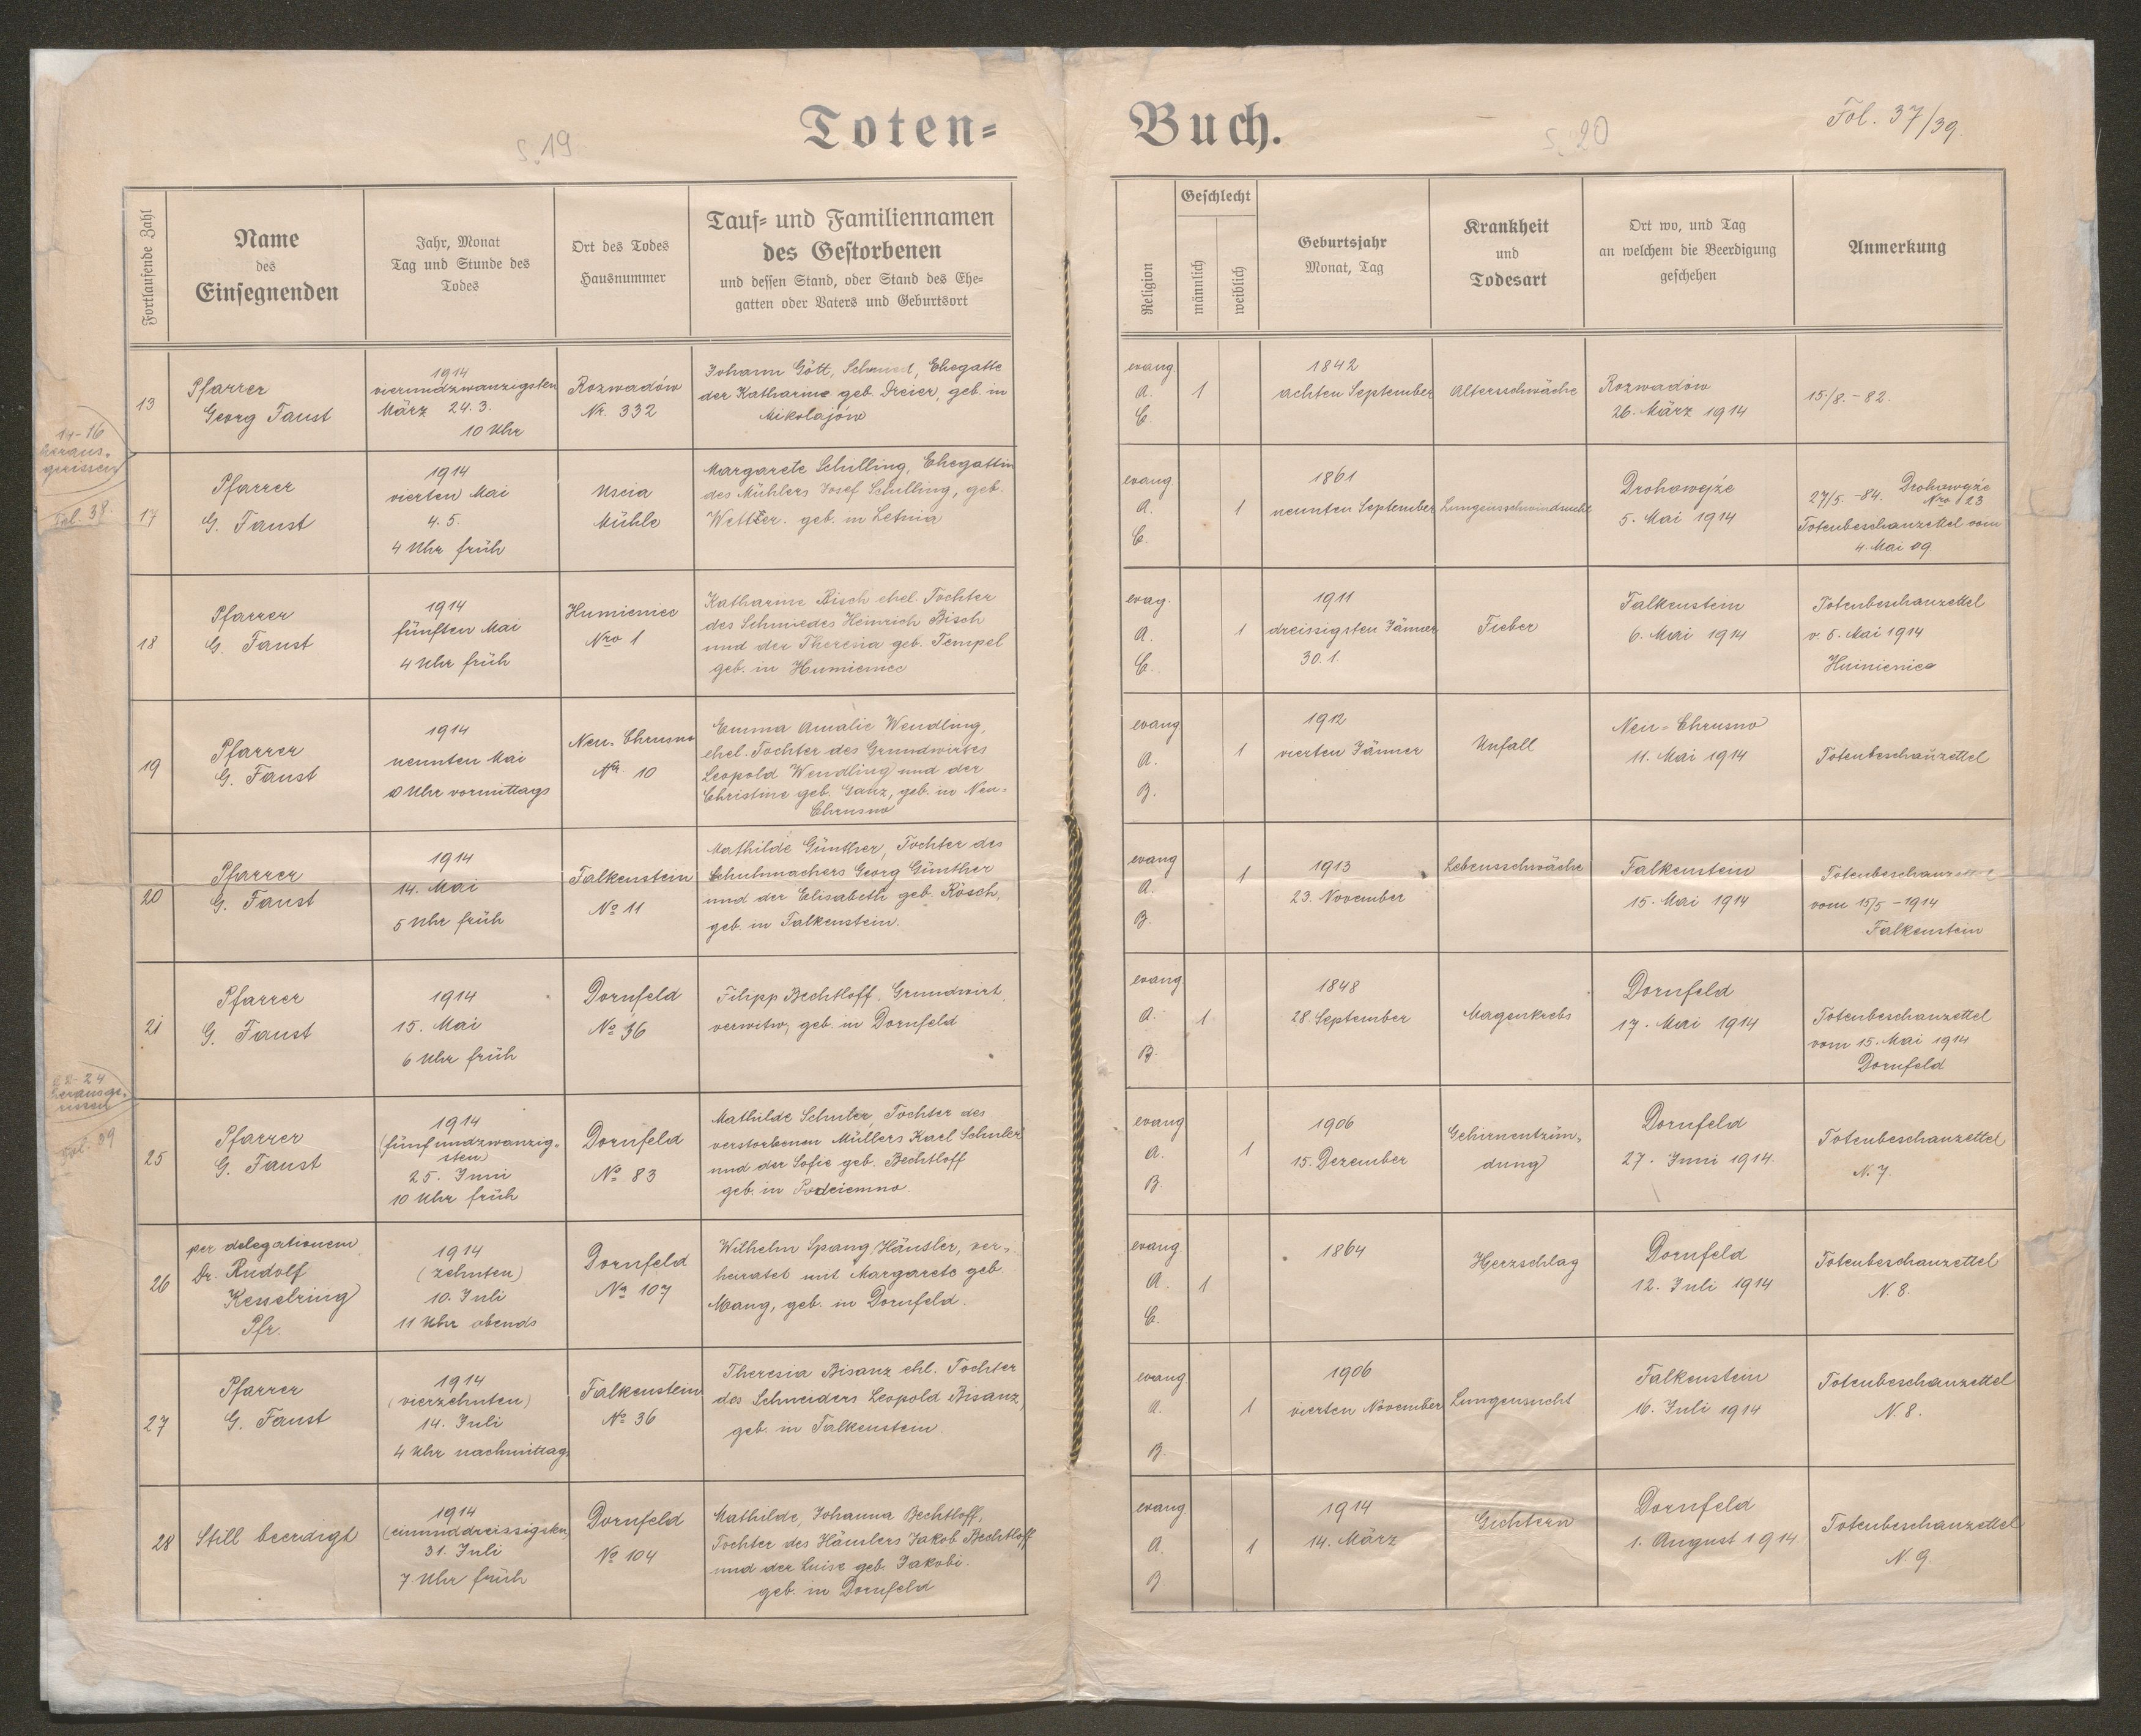 Toten=
Buch.
S. 19
S. 20
Fol. 37/39.
Fortlaufende Zahl
Name
des
Einsegnenden
Jahr, Monat
Tag und Stunde des
Todes
Ort des Todes
Hausnummer
Tauf= und Familiennamen
des Gestorbenen
und dessen Stand, oder Stand des Ehe=
gatten oder Vaters und Geburtsort
Religion
Geschlecht
männlich
weiblich
Geburtsjahr
Monat, Tag
Krankheit
und
Todesart
Ort wo, und Tag
an welchem die Beerdigung
geschehen
Anmerkung
13
Pfarrer
Georg Faust
1914
vierundzwanzigsten
März 24.3.
10 Uhr
Rozwadów
Nr. 332
Johann Gött, Schmied, Ehegatte
der Katharine geb. Dreier, geb. in
Mikolajów
evang.
A.
C.
1
1842
achten September
Altersschwäche
Rozwadów
26. März 1914
15/8.-82.
14-16
heraus-
gerissen
Fol. 38.
17
Pfarrer
G. Faust
1914
vierten Mai
4.5.
4 Uhr früh
Uscia
Mühle
Margarete Schilling, Ehegattin
des Mühlers Josef Schilling, geb.
Wettzer. geb. in Letnia
evang
A.
C.
1
1861
neunten September
Lungenschwindsucht
Drohowyźe
5. Mai 1914
27/5.-84. Drohowyźe
Nro 123
Totenbeschauzettel vom
4. Mai 09.
18
Pfarrer
G. Faust
1914
fünften Mai
4 Uhr früh
Humieniec
Nro 1
Katharina Bisch ehel. Tochter
des Schmiedes Heinrich Bisch
und der Theresia geb. Tempel
geb. in Humieniec
evag.
A.
C.
1
1911
dreissigsten Jänner
30.1.
Fieber
Falkenstein
6. Mai 1914
Totenbeschauzettel
v. 6. Mai 1914
Huinieniec
19
Pfarrer
G. Faust
1914
neunten Mai
Uhr vormittags
Neu-Chrusno
Nr. 10
Emma Amalie Wendling,
ehel. Tochter des Grundwirtes
Leopold Wendling und der
Christine geb. Ganz, geb. in Neu-
Chrusno
evang
A.
B.
1
1912
vierten Jänner
Unfall
Neu-Chrusno
11. Mai 1914
Totenbeschauzettel
20
Pfarrer
G. Faust
1914
14. Mai
5 Uhr früh
Falkenstein
No 11
Mathilde Günther, Tochter des
Schuhmachers Georg Günther
und der Elisabeth geb. Rösch,
geb. in Falkenstein.
evang
A.
B.
1
1913
23. November
Lebensschwäche
Falkenstein
15. Mai 1914
Totenbeschauzettel
vom 15/5-1914
Falkenstein
21
Pfarrer
G. Faust
1914
15. Mai
6 Uhr früh
Dornfeld
No 36
Filipp Bechtloff, Grundwirt,
verwitw, geb. in Dornfeld
evang
A.
B.
1
1848
28. September
Magenkrebs
Dornfeld
17. Mai 1914
Totenbeschauzettel
vom 15. Mai 1914
Dornfeld
22-24
herausge-
rissen
Fol. 39
25
Pfarrer
G. Faust
1914
(fünfundzwanzig-
sten)
25. Juni
10 Uhr früh
Dornfeld
No 83
Mathilde Schuler, Tochter des
verstorbenen Müllers Karl Schuler
und der Sofie geb. Bechtloff
geb. in Podciemno.
evang
A.
B.
1
1906
15. Dezember
Gehirnentzün-
dung
Dornfeld
27. Juni 1914.
Totenbeschauzettel
N. 7.
26
per delegationem
Dr. Rudolf
Kesselring
Pfr.
1914
(zehnten)
10. Juli
11 Uhr abends
Dornfeld
No 107
Wilhelm Spang, Häusler, ver-
heiratet mit Margarete geb.
Mang, geb. in Dornfeld.
evang.
A.
C.
1
1864
Herzschlag
Dornfeld
12. Juli 1914
Totenbeschauzettel
N. 8.
27
Pfarrer
G. Faust
1914
(vierzehnten)
14. Juli
4 Uhr nachmittag
Falkenstein
No 36
Theresia Bisanz ehl. Tochter
des Schneiders Leopold Bisanz,
geb. in Falkenstein.
evang
A.
B.
1
1906
vierten November
Lungensucht
Falkenstein
16. Juli 1914
Totenbeschauzettel
N. 8.
28
Still beerdigt
1914
(einunddreissigsten)
31. Juli
7 Uhr früh
Dornfeld
No 104
Mathilde, Johanna Bechtloff,
Tochter des Häuslers Jakob Bechtloff
und der Luise geb. Jakobi.
geb. in Dornfeld
evang
A.
B
1
1914
14. März
Gichtern
Dornfeld
1. August 1914
Totenbeschauzettel
N. 9.